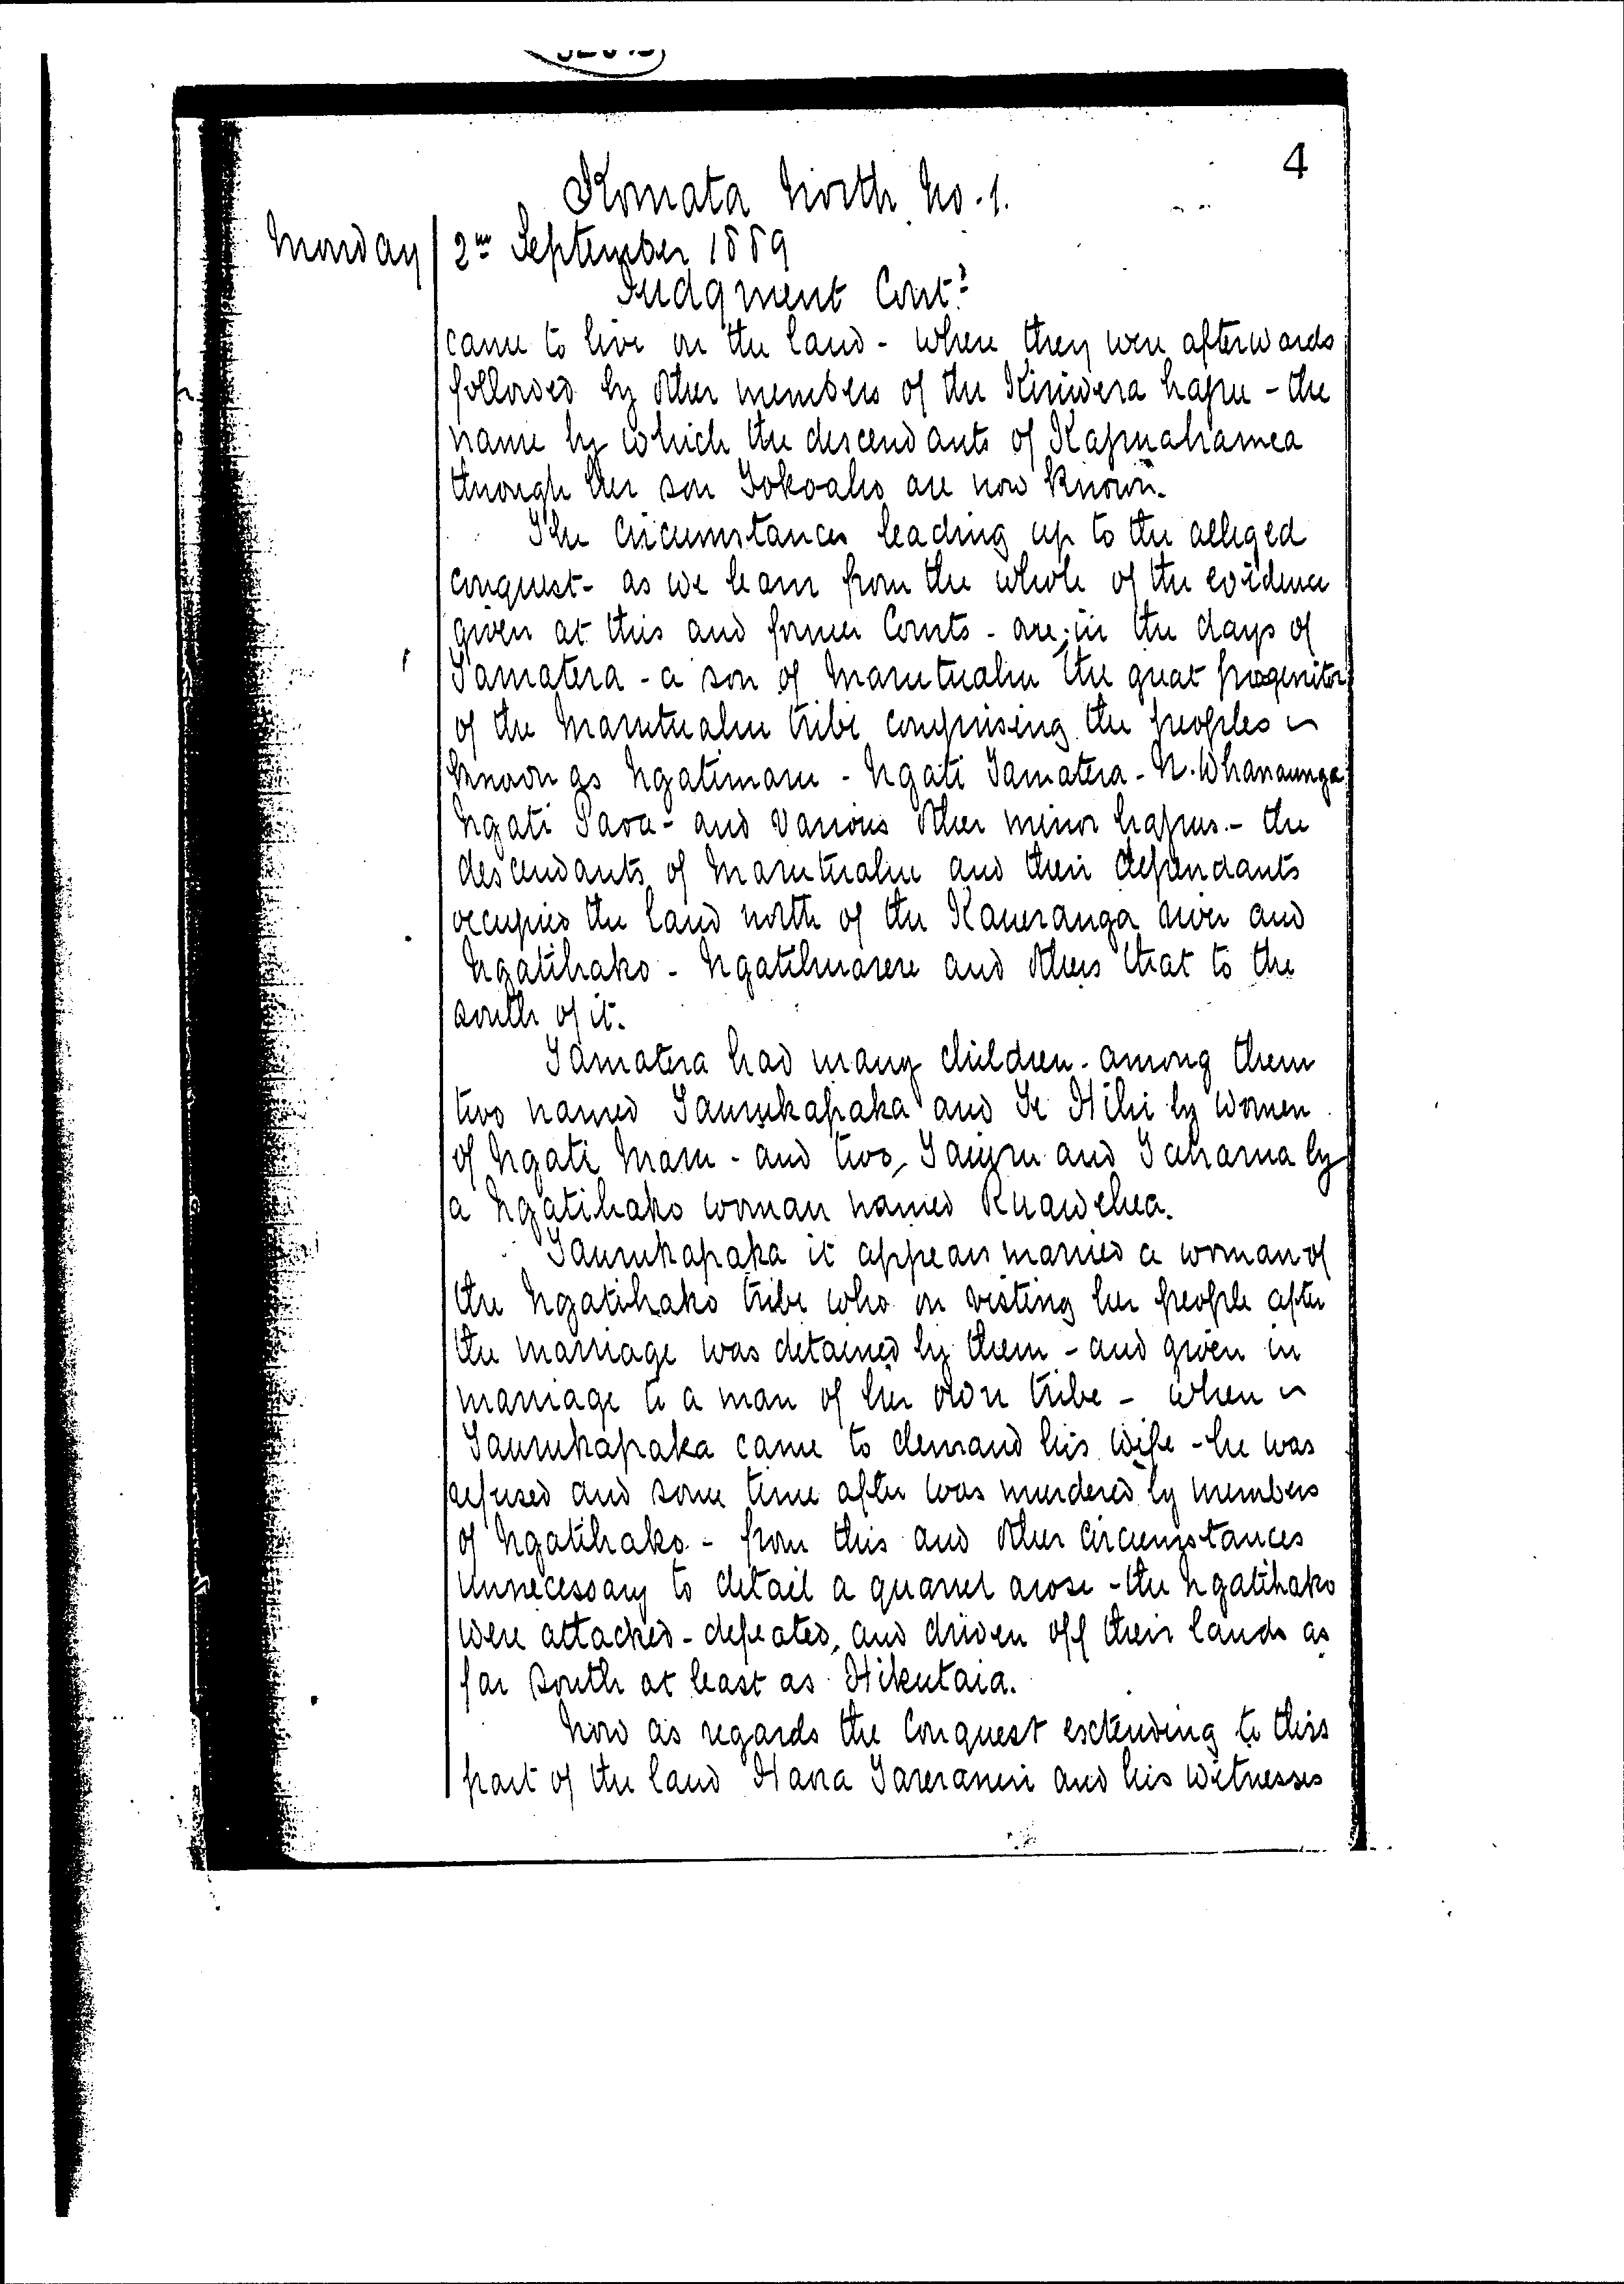 4
Komata North No. 1.
Monday 2nd September 1889
Judgment Contd
came to live on the land - where they were afterwards
followed by other members of the Kiriwera hapu - the
name by which the descendants of Kapuahamea
through her son Tokoahu are now known.
The circumstances leading up to the alleged
conquest - as we learn from the whole of the evidence
given at this and former Courts - are; in the days of
Tamatera - a son of Marutuahu the great progenitor
of the Marutuahu tribe comprising the peoples
known as Ngatimaru - Ngati Tamatera - N. Whanaunga
Ngati Paoa - and various other minor hapus. - the
descendants of Marutuahu and their dependants
occupied the land north of the Kaueranga river and
Ngatihako - Ngatihuarere and others that to the
south of it.
Tamatera had many children - among them
two named Taurukapaka and Te Hihi by women
of Ngati Maru - and two, Taiuru and Taharua by
a Ngatihako woman named Ruawehea.
Taurukapaka it appears married a woman of
the Ngatihako tribe who on visting her people after
the marriage was detained by them - and given in
marriage to a man of her own tribe - when
Taurukapaka came to demand his wife - he was
refused and some time after was murdered by members
of Ngatihako. - from this and other circumstances
unnecessary to detail a quarrel arose - the Ngatihako
were attacked - defeated, and driven off their lands as
far south at least as Hikutaia.
Now as regards the Conquest extending to this
part of the land Haora Tareranui and his witnesses